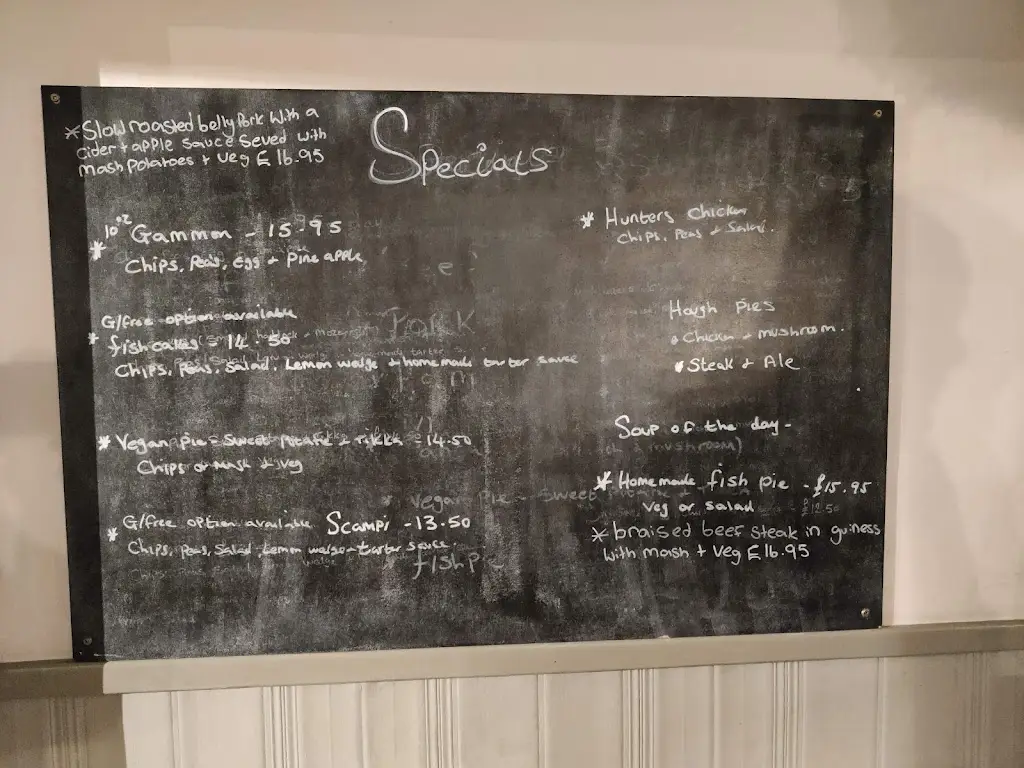 Specials
*Slow roasted belly Pork with a
cider + apple sauce seved with
mash potatoes + veg £16.95
10oz Gammon - 15.95
*
Chips, Peas, Egg + Pineapple
G/free option available
* fishcakes = 14.50
Chips, Peas, Salad, Lemon wedge + homemade tarter sauce
* Vegan Pie = Sweet Potato + Tikka = 14.50
Chips or Mash + veg
G/free option available Scampi - 13.50
*
Chips, Peas, Salad Lemon wedge + tarter sauce.
* Hunters Chicken
Chips, Peas + Salad.
Hough Pies
• Chicken + mushroom.
* Steak + Ale
Soup of the day -
* Homemade fish pie - £15.95
veg or salad
* braised beef steak in guiness
with mash + veg £16.95